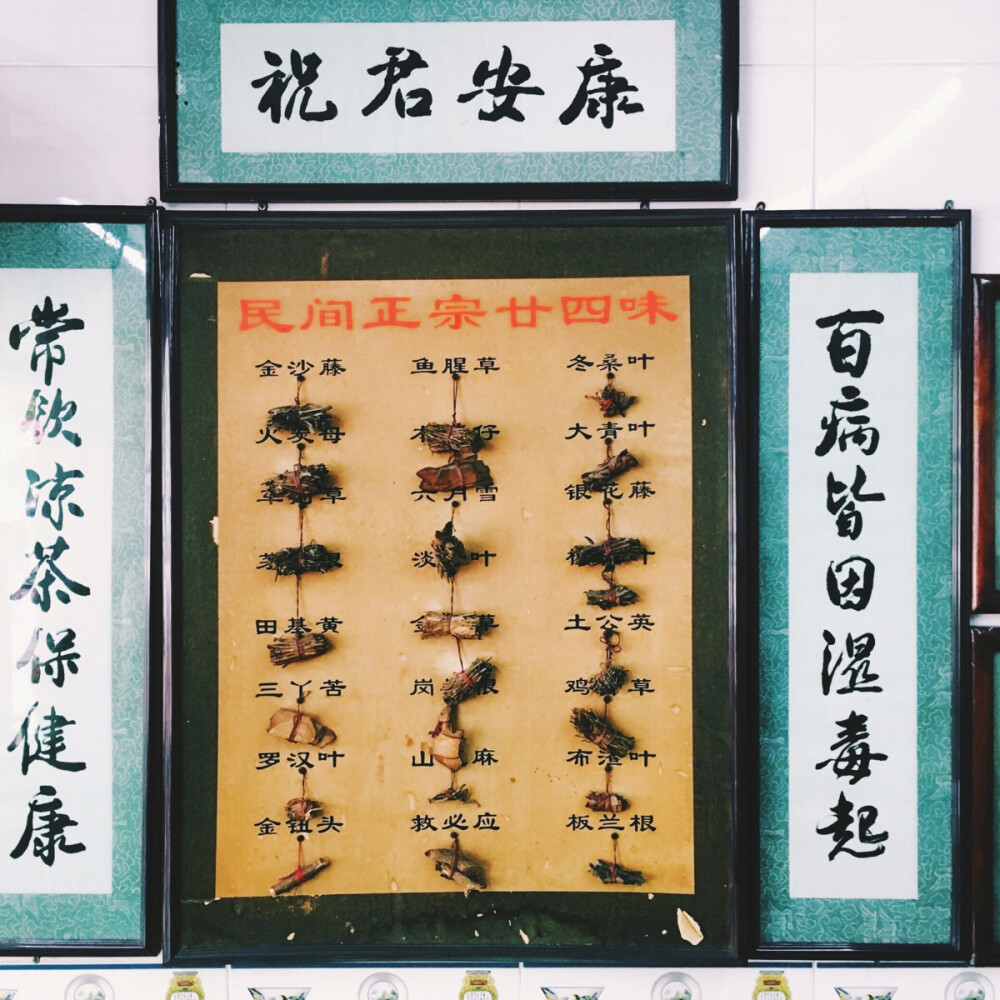 祝君安康
百病皆因湿毒起
常饮凉茶保健康
民间正宗廿四味
金沙藤 鱼腥草 冬桑叶
火炭母 仔 大青叶
草 六月雪 银花藤
淡 叶 叶
田基黄 草 土公英
三丫苦 岗 根 鸡 草
罗汉叶 山 麻 布渣叶
金钮头 救必应 板兰根